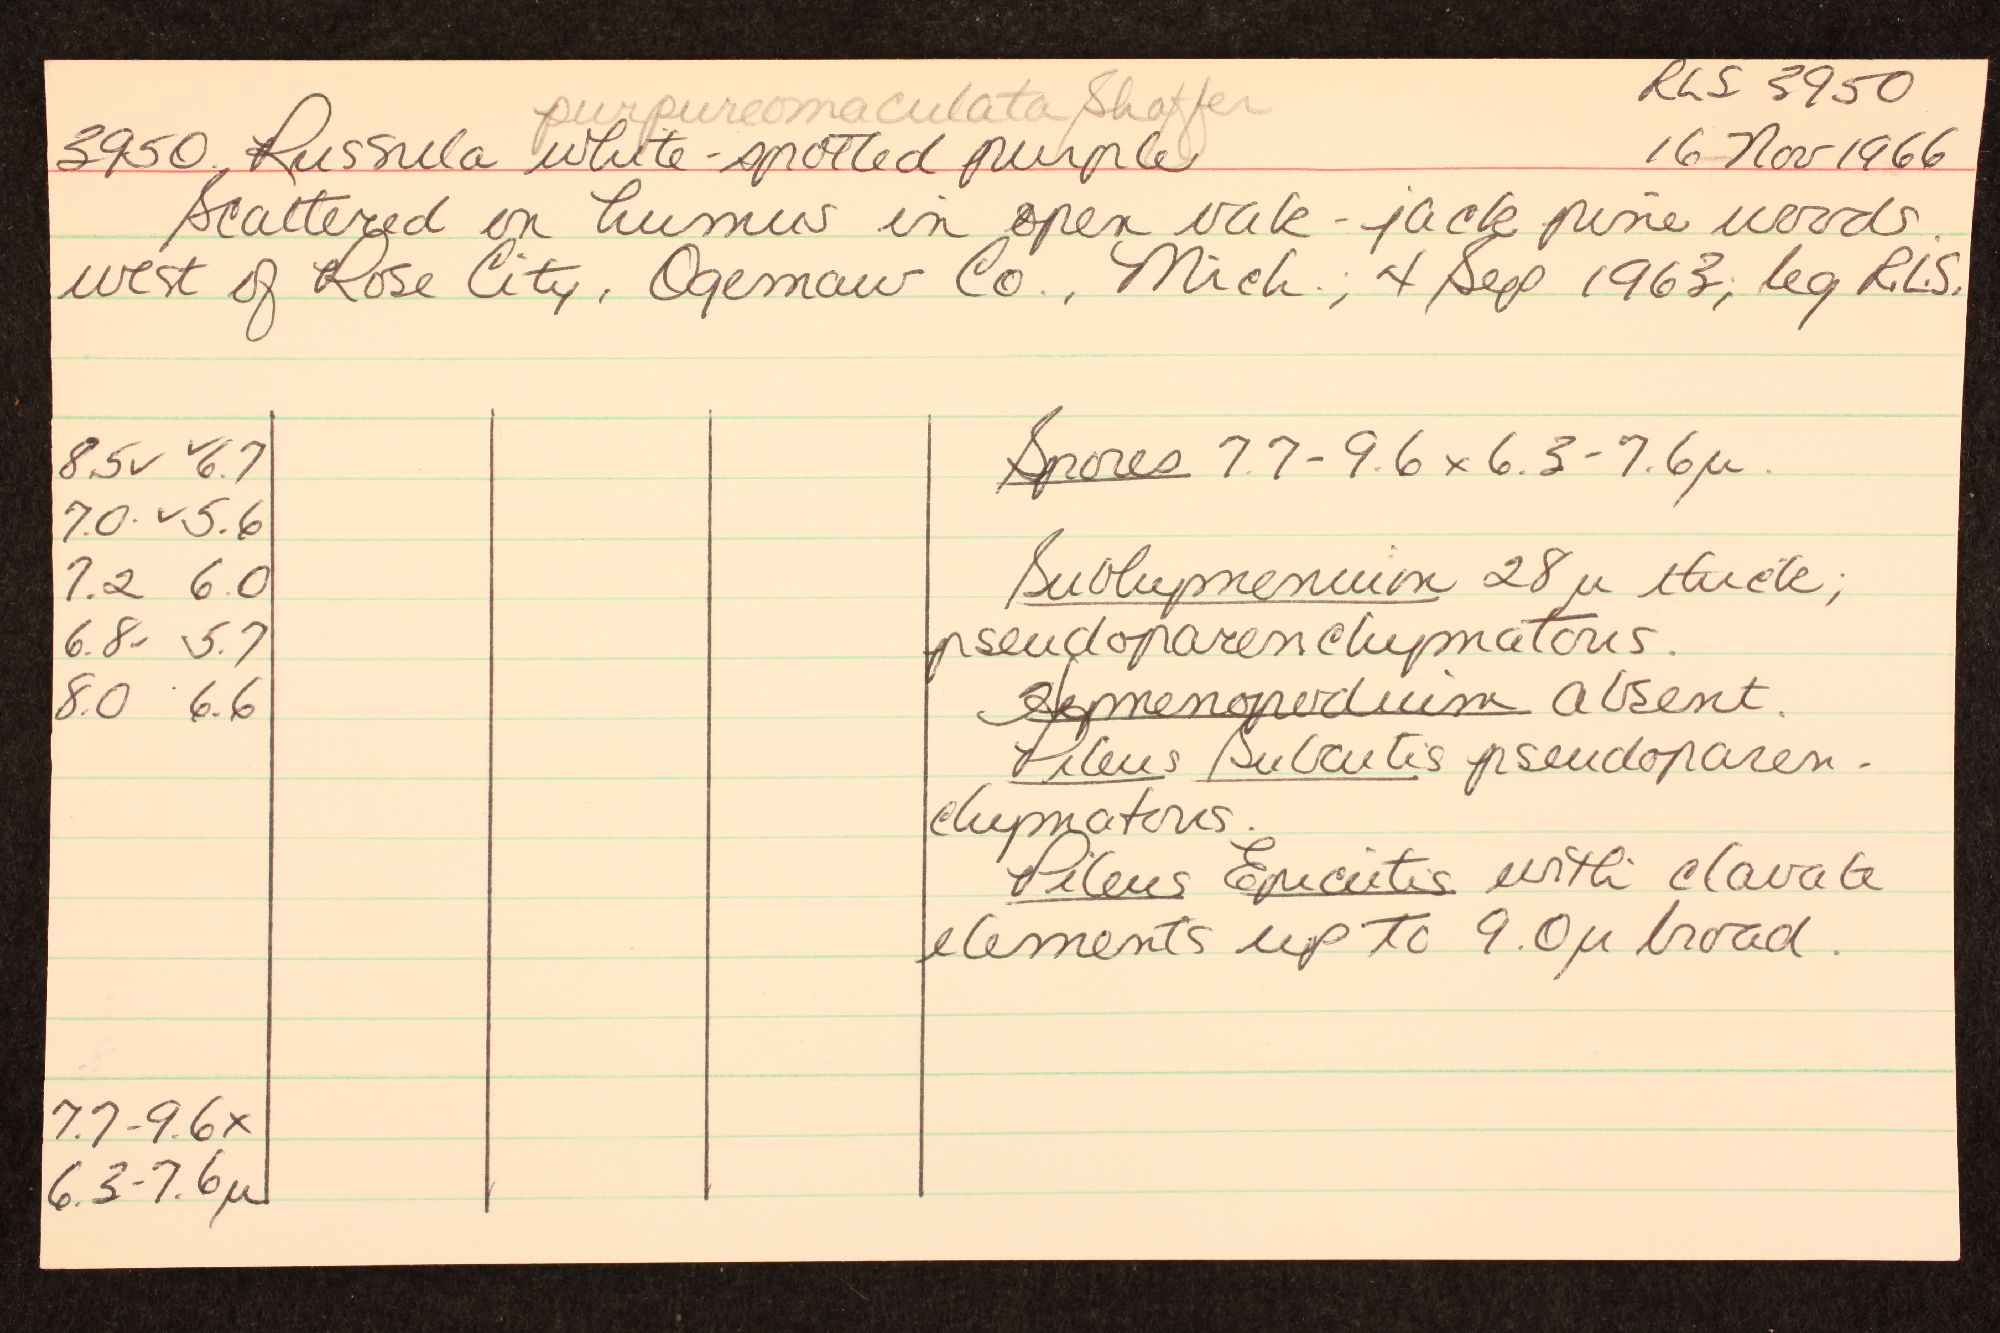 RLS 3950
purpureomaculata Shaffer
3950. Russula white-spotted purple 16 Nov 1966
Scattered on humus in open oak-jack pine woods
west of Rose City, Ogemaw Co., Mich.; 4 Sep 1963; leg R.L.S.
8.5 6.7
7.0 5.6
7.2 6.0
6.8 5.7
8.0 6.6
7.7-9.6 x
6.3-7.6 µ
Spores 7.7-9.6 x 6.3-7.6 µ.
Subhymenium 28 µ thick;
pseudoparenchymatous.
Hymenopodium absent.
Pileus Subcutis pseudoparen-
chymatous.
Pileus Epicutis with clavate
elements up to 9.0 µ broad.